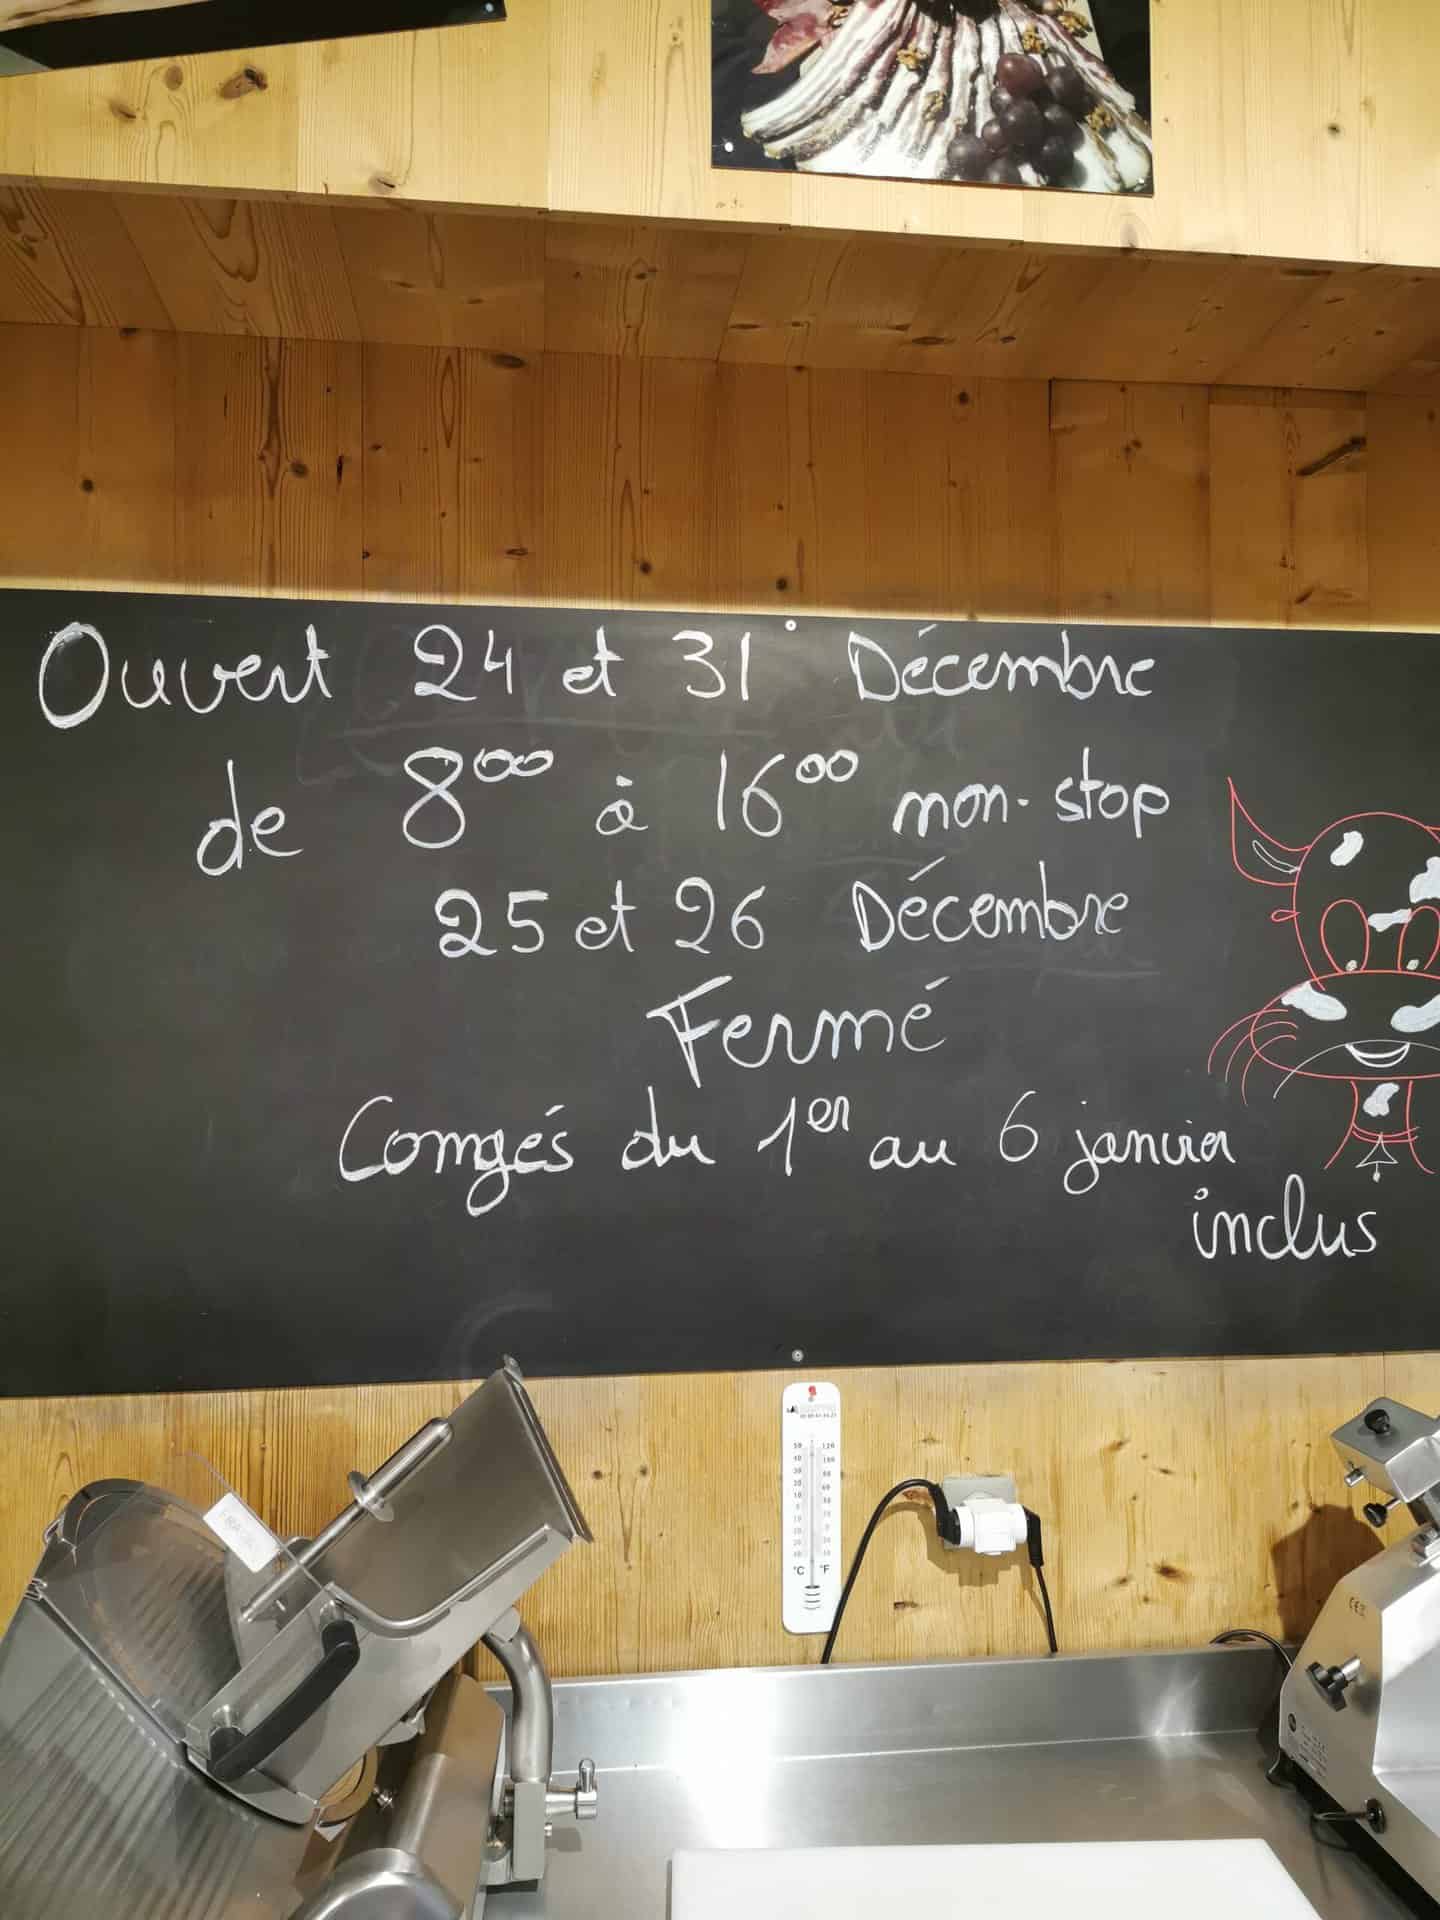 Ouvert 24 et 31 Décembre
de 8⁰⁰ à 16⁰⁰ non-stop
25 et 26 Décembre
Fermé
Congés du 1er au 6 janvier
inclus
50 120
°C °F
CE